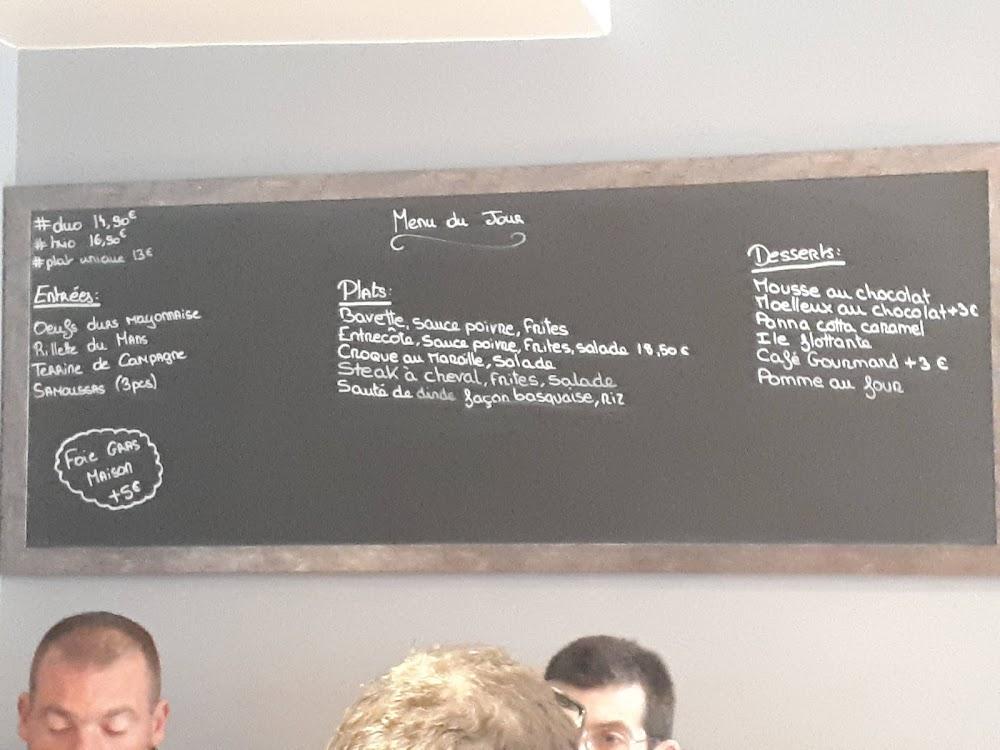 #duo 14,90€
#trio 16,50€
#plat unique 13€
Menu du Jour
Entrées:
Oeufs durs mayonnaise
Rillette du Mans
Terrine de Campagne
Samoussas (3pcs)
Foie Gras
Maison
+5€
Plats:
Bavette, sauce poivre, frites
Entrecôte, sauce poivre, frites, salade 18,50€
Croque au Maroille, salade
Steak à cheval, frites, salade
Sauté de dinde façon basquaise, riz
Desserts:
Mousse au chocolat
Moelleux au chocolat+3€
Panna cotta caramel
Ile flottante
Café Gourmand +3€
Pomme au four